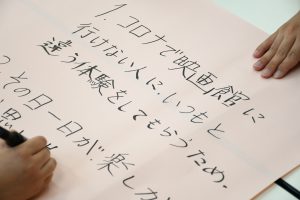 1.コロナで映画館に
行けない人に、いつもと
違う体験をしてもらうため。
その日一日が、楽しか